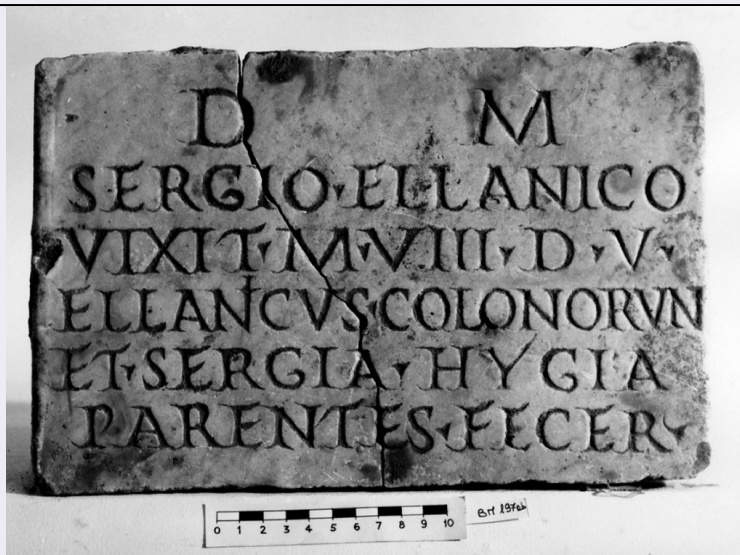 D M
SERGIO·ELLANICO
VIXIT·M·VIII·D·V·
ELLANCVS COLONORVN
ET·SERGIA·HYGIA
PARENTES·FECER·
0 1 2 3 4 5 6 7 8 9 10